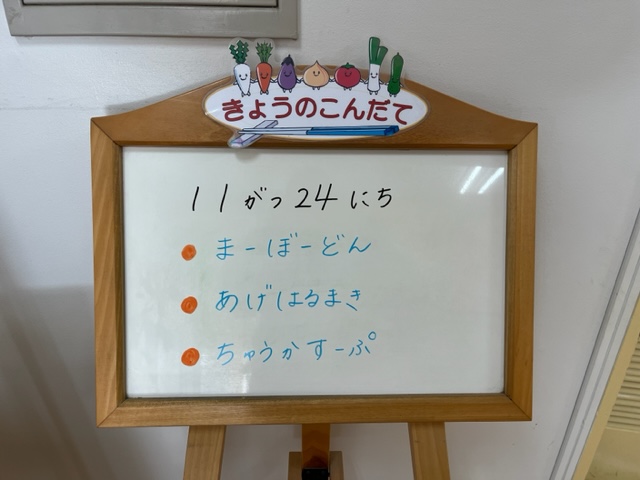 きょうのこんだて
11がつ24にち
まーぼーどん
あげはるまき
ちゅうかすーぷ